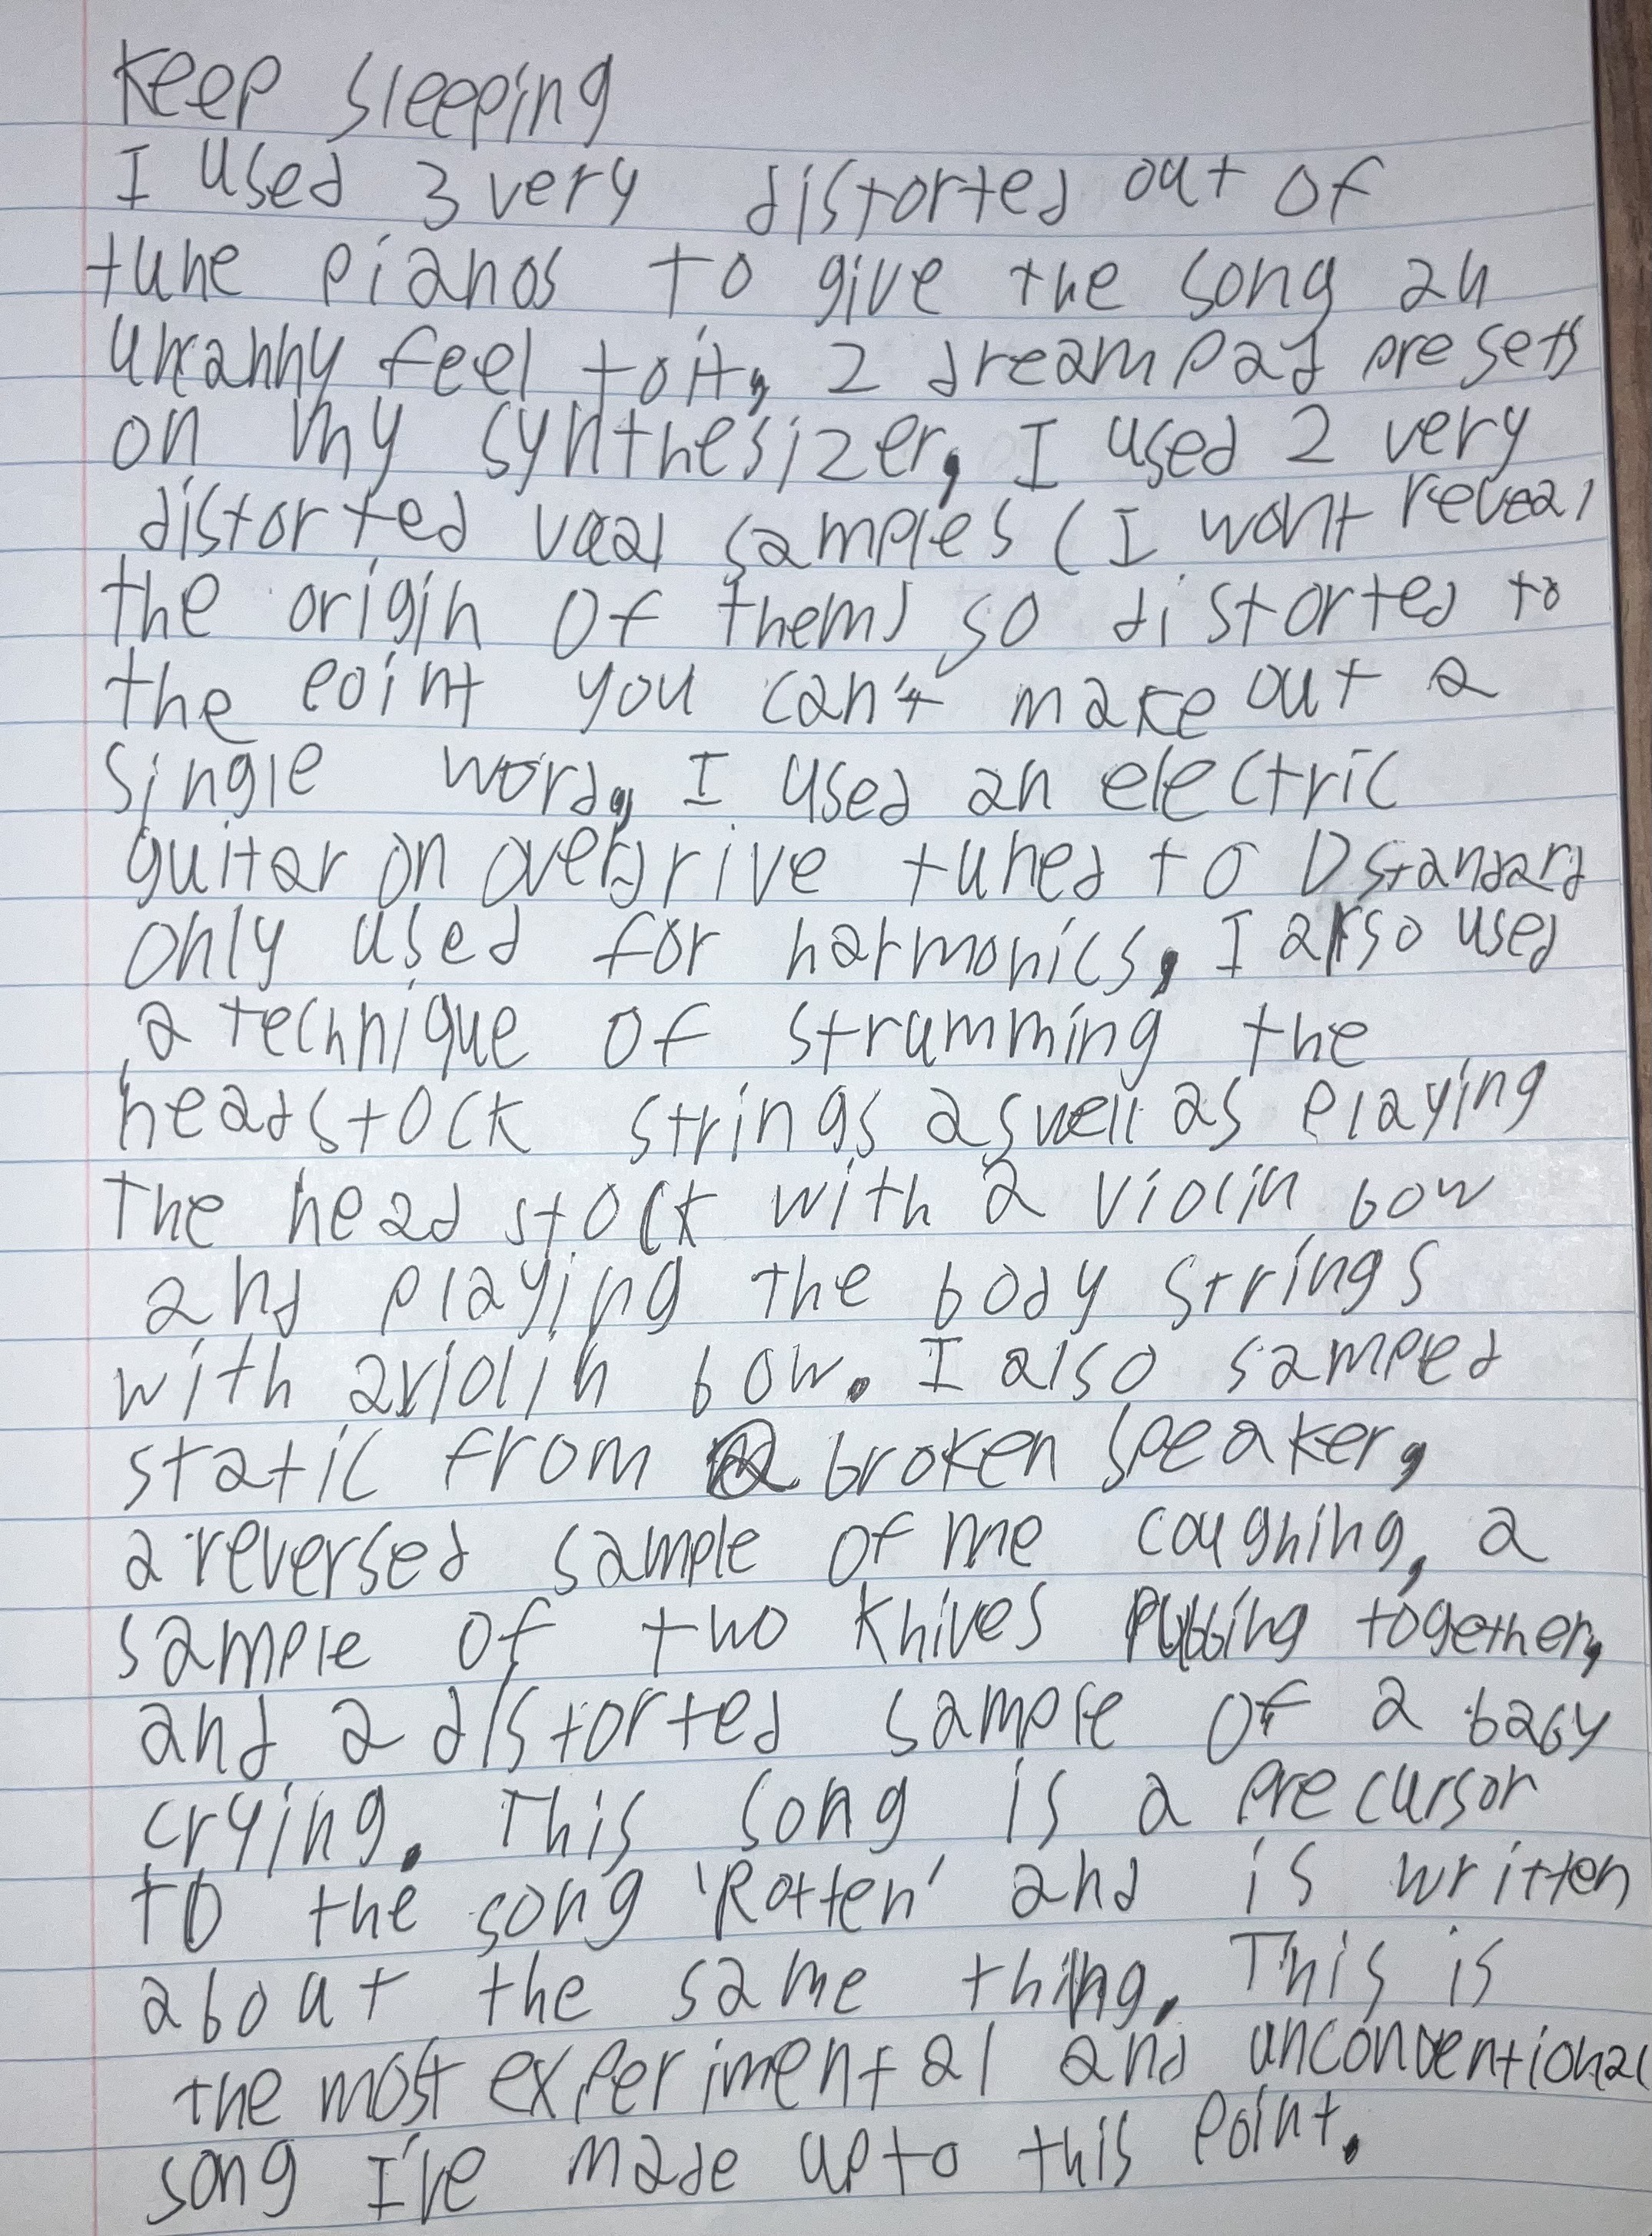 Keep sleeping
I used 3 very distorted out of
tune pianos to give the song an
uncanny feel to it, 2 dream pad presets
on my synthesizer, I used 2 very
distorted vocal samples (I wont reveal
the origin of them) so distorted to
the point you can't make out a
single word, I used an electric
guitar on overdrive tuned to D standard
only used for harmonics, I also used
a technique of strumming the
headstock strings aswell as playing
the head stock with a violin bow
and playing the body strings
with a violin bow. I also samped
static from a broken speaker,
a reversed sample of me coughing, a
sample of two knives rubbing together,
and a distorted sample of a baby
crying. This song is a precursor
to the song 'Rotten' and is written
about the same thing. This is
the most experimental and unconventional
song I've made up to this point.